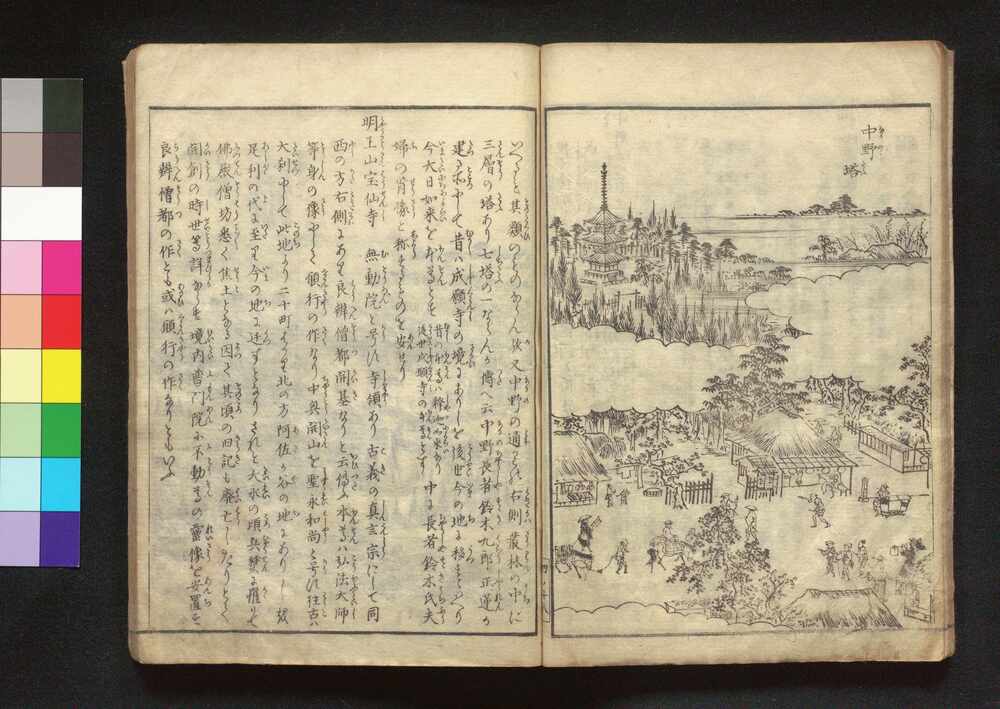 中野
塔
三層の塔あり七塔の一ならんか傳へ云中野長者鈴木九郎正蓮か
建る所にして昔ハ成願寺の境にありしを後世今の地に移すといへり
今大日如来を本尊とす
昔の本尊ハ釋迦如来なり
後世成願寺の本尊とす
中に長者鈴木氏夫
婦の肖像と称するものを安せり
明王山宝仙寺 無動院と号す寺領あり古義の真言宗にして同
西の方右側にあり良辨僧都開基なりと云傳ふ本尊ハ弘法大師
等身の像にして願行の作なり中興開山を聖永和尚と号す往古ハ
大刹にして此地より二十町あまり北の方阿佐か谷の地にありしか
足利の代に至り今の地に迁すとなりされと大永の頃兵燹に罹りて
佛殿僧坊悉く焦土となる因て其頃の旧記も廃亡したりとて
開創の時世等詳ならす境内普門院に不動尊の靈像を安置す
良辨僧都の作とも或ハ願行の作なりともいふ